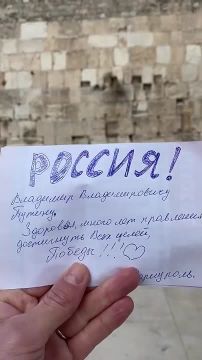 РОССИЯ!
Владимир Владимировичу
Путену,
Здоровья, много лет правления
достигнуть Всех целей,
Победы!!!